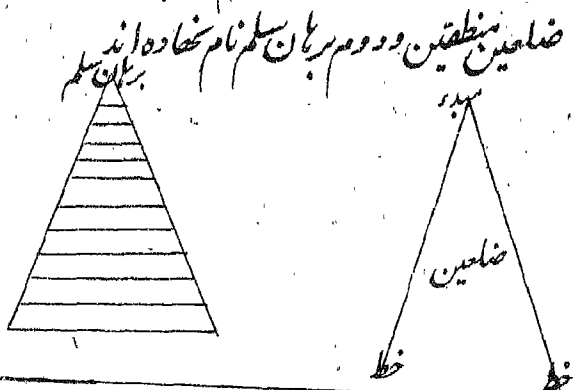 ضلعین منطقین و دوم برہان سلم نام نهاده اند
برہان سلم
مبدء
ضلعین
خط
خط